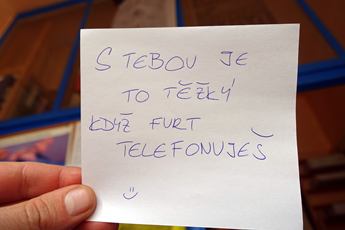 S TEBOU JE
TO TĚŽKÝ
KDYŽ FURT
TELEFONUJEŠ